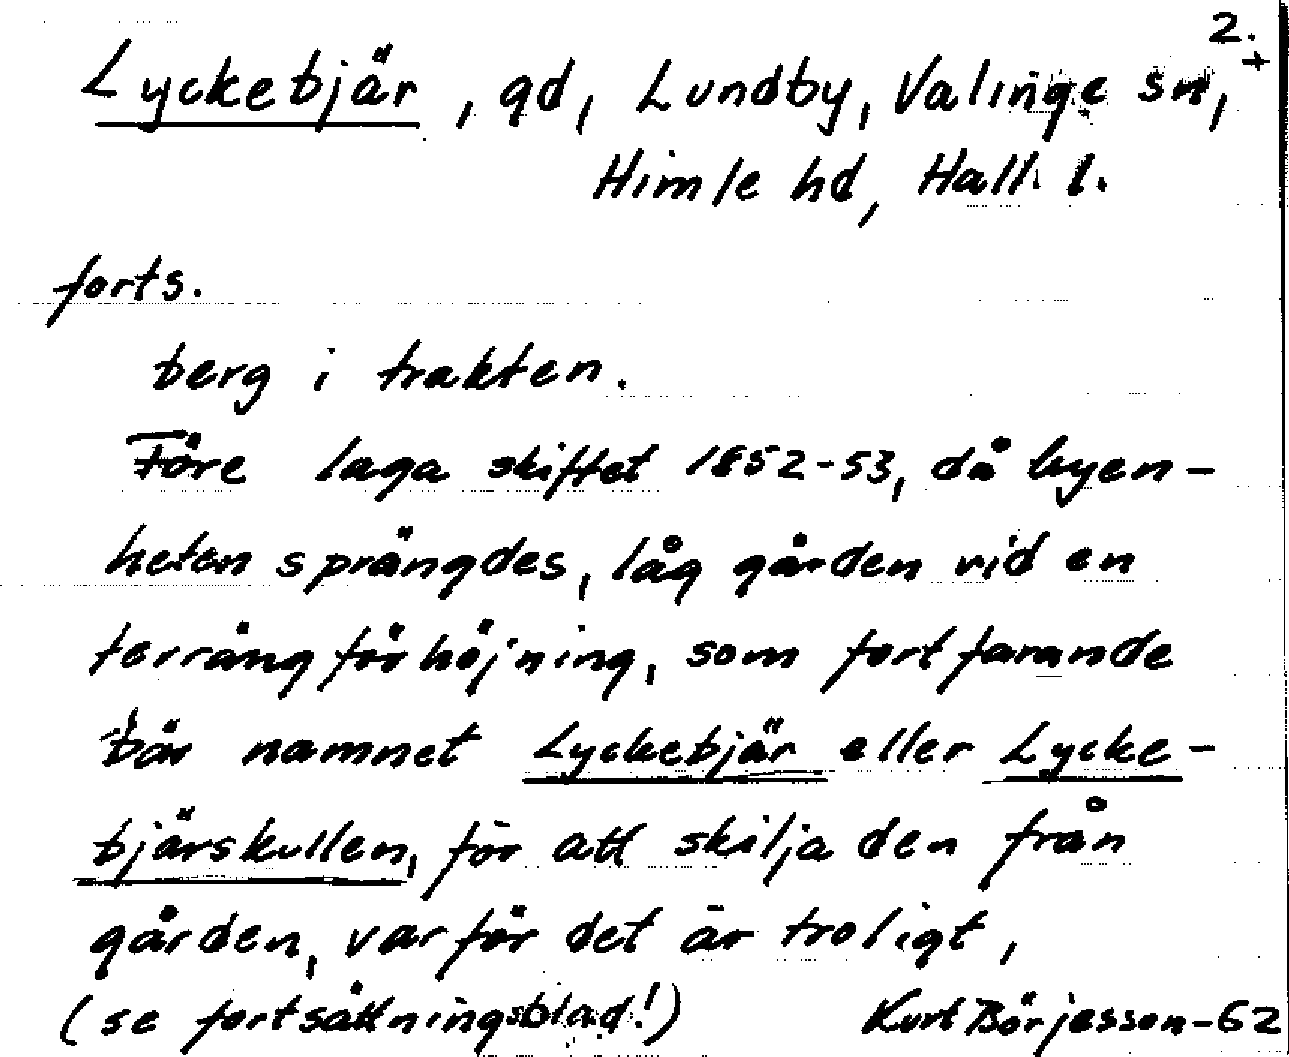 2.
Lyckebjär, gd, Lundby, Valinge sn, +
Himle hd, Hall. l.
forts.
berg i trakten.
Före laga skiftet 1852-53, då byen-
heten sprängdes, låg gården vid en
terrängförhöjning, som fortfarande
bär namnet Lyckebjär eller Lycke-
bjärskullen, för att skilja den från
gården, varför det är troligt,
(se fortsättningsblad!) Kurt Börjesson-62